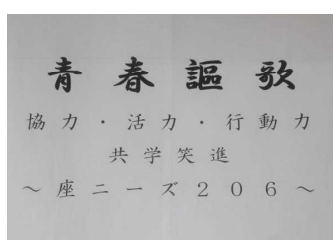 青春謳歌
協力・活力・行動力
共学笑進
～座ニーズ２０６～